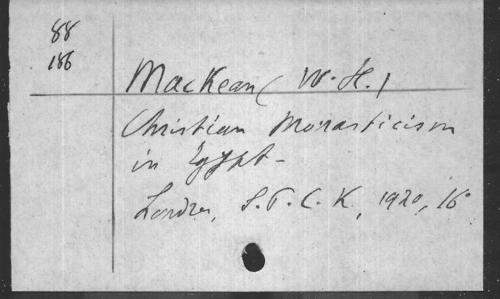 88
186
Mackean (W. H.)
Christian Monasticism
in Egypt -
Londres, S.P.C.K, 1920, 16°